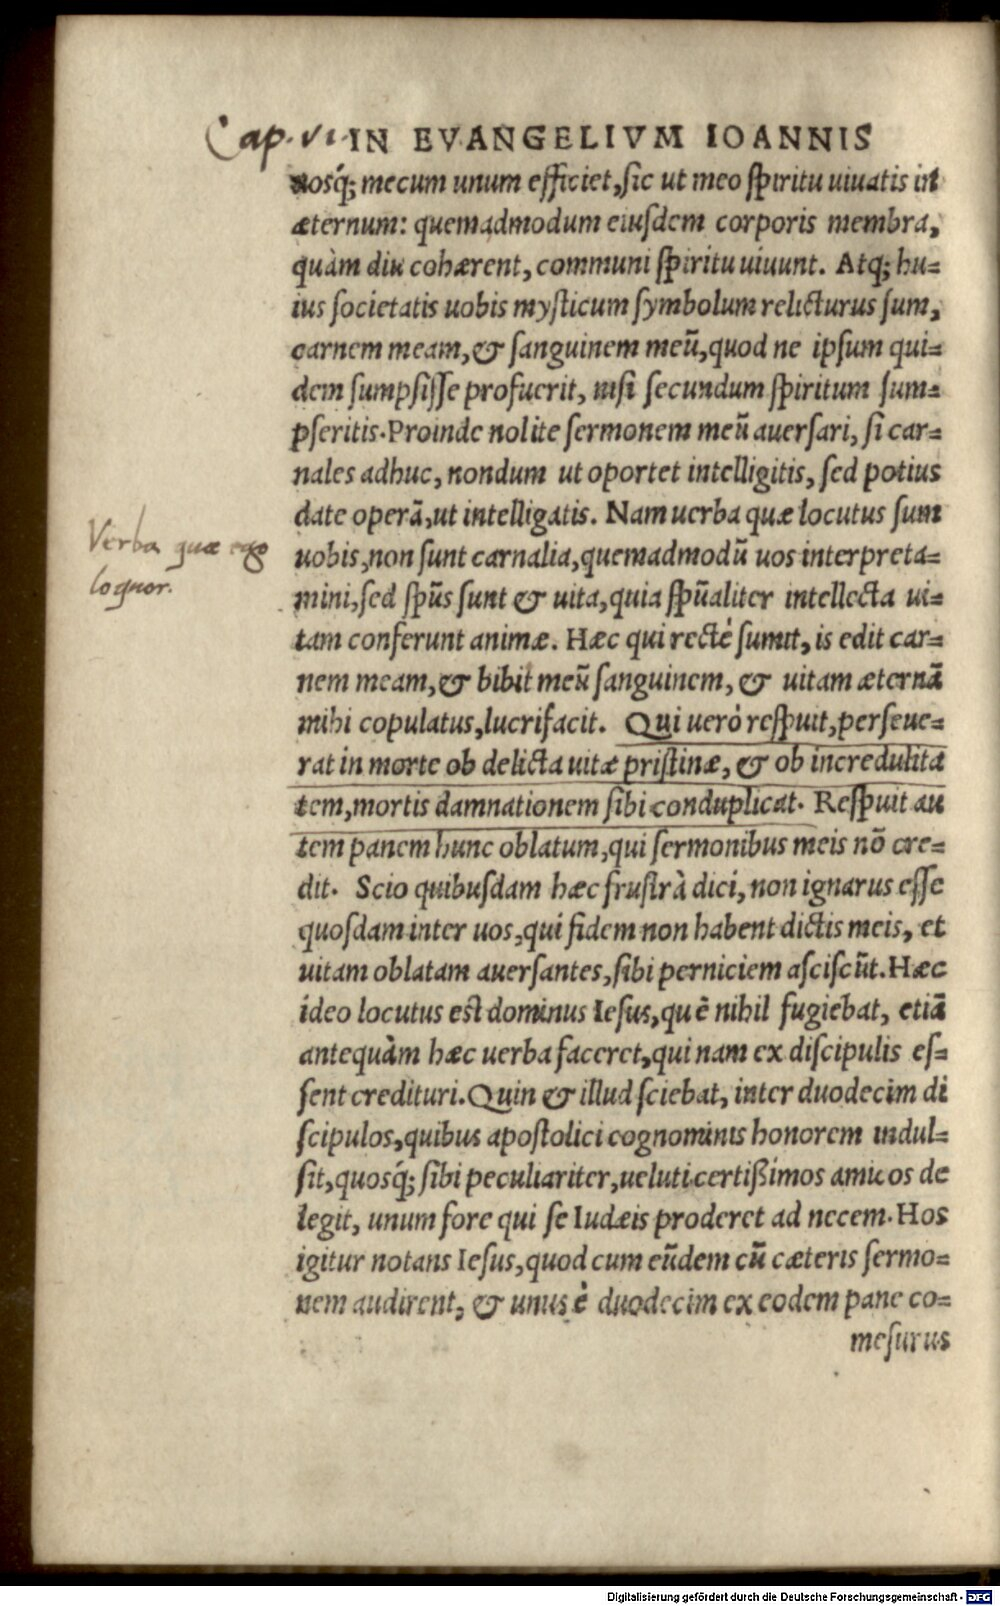 Cap. VI. IN EVANGELIVM IOANNIS
uosq́; mecum unum efficiet, ſic ut meo ſpiritu uiuatis in
æternum: quemadmodum eiuſdem corporis membra,
quàm diu cohærent, communi ſpiritu uiuunt. Atq; hu=
ius ſocietatis uobis myſticum ſymbolum relicturus ſum,
carnem meam, & ſanguinem meū, quod ne ipſum qui=
dem ſumpſiſſe profuerit, niſi ſecundum ſpiritum ſum=
pſeritis. Proinde nolite ſermonem meū auerſari, ſi car=
nales adhuc, nondum ut oportet intelligitis, ſed potius
date operā, ut intelligatis. Nam uerba quæ locutus ſum
Verba quæ ego
loquor.
uobis, non ſunt carnalia, quemadmodū uos interpreta=
mini, ſed ſpūs ſunt & uita, quia ſpūaliter intellecta ui=
tam conferunt animæ. Hæc qui rectè ſumit, is edit car=
nem meam, & bibit meū ſanguinem, & uitam æternā
mihi copulatus, lucrifacit. Qui uerò reſpuit, perſeue=
rat in morte ob delicta uitæ priſtinæ, & ob incredulita
tem, mortis damnationem ſibi conduplicat. Reſpuit au
tem panem hunc oblatum, qui ſermonibus meis nō cre=
dit. Scio quibuſdam hæc fruſtrà dici, non ignarus eſſe
quoſdam inter uos, qui fidem non habent dictis meis, et
uitam oblatam auerſantes, ſibi perniciem aſciſcūt. Hæc
ideo locutus est dominus Ieſus, quē nihil fugiebat, etiā
antequàm hæc uerba faceret, qui nam ex diſcipulis eſ=
ſent credituri. Quin & illud ſciebat, inter duodecim di
ſcipulos, quibus apoſtolici cognominis honorem indul=
ſit, quosq́; ſibi peculiariter, ueluti certißimos amicos de
legit, unum fore qui ſe Iudæis proderet ad necem. Hos
igitur notans Ieſus, quod cum eūdem cū cæteris ſermo=
nem audirent, & unus è duodecim ex eodem pane co=
meſurus
Digitalisierung gefördert durch die Deutsche Forschungsgemeinschaft - DFG